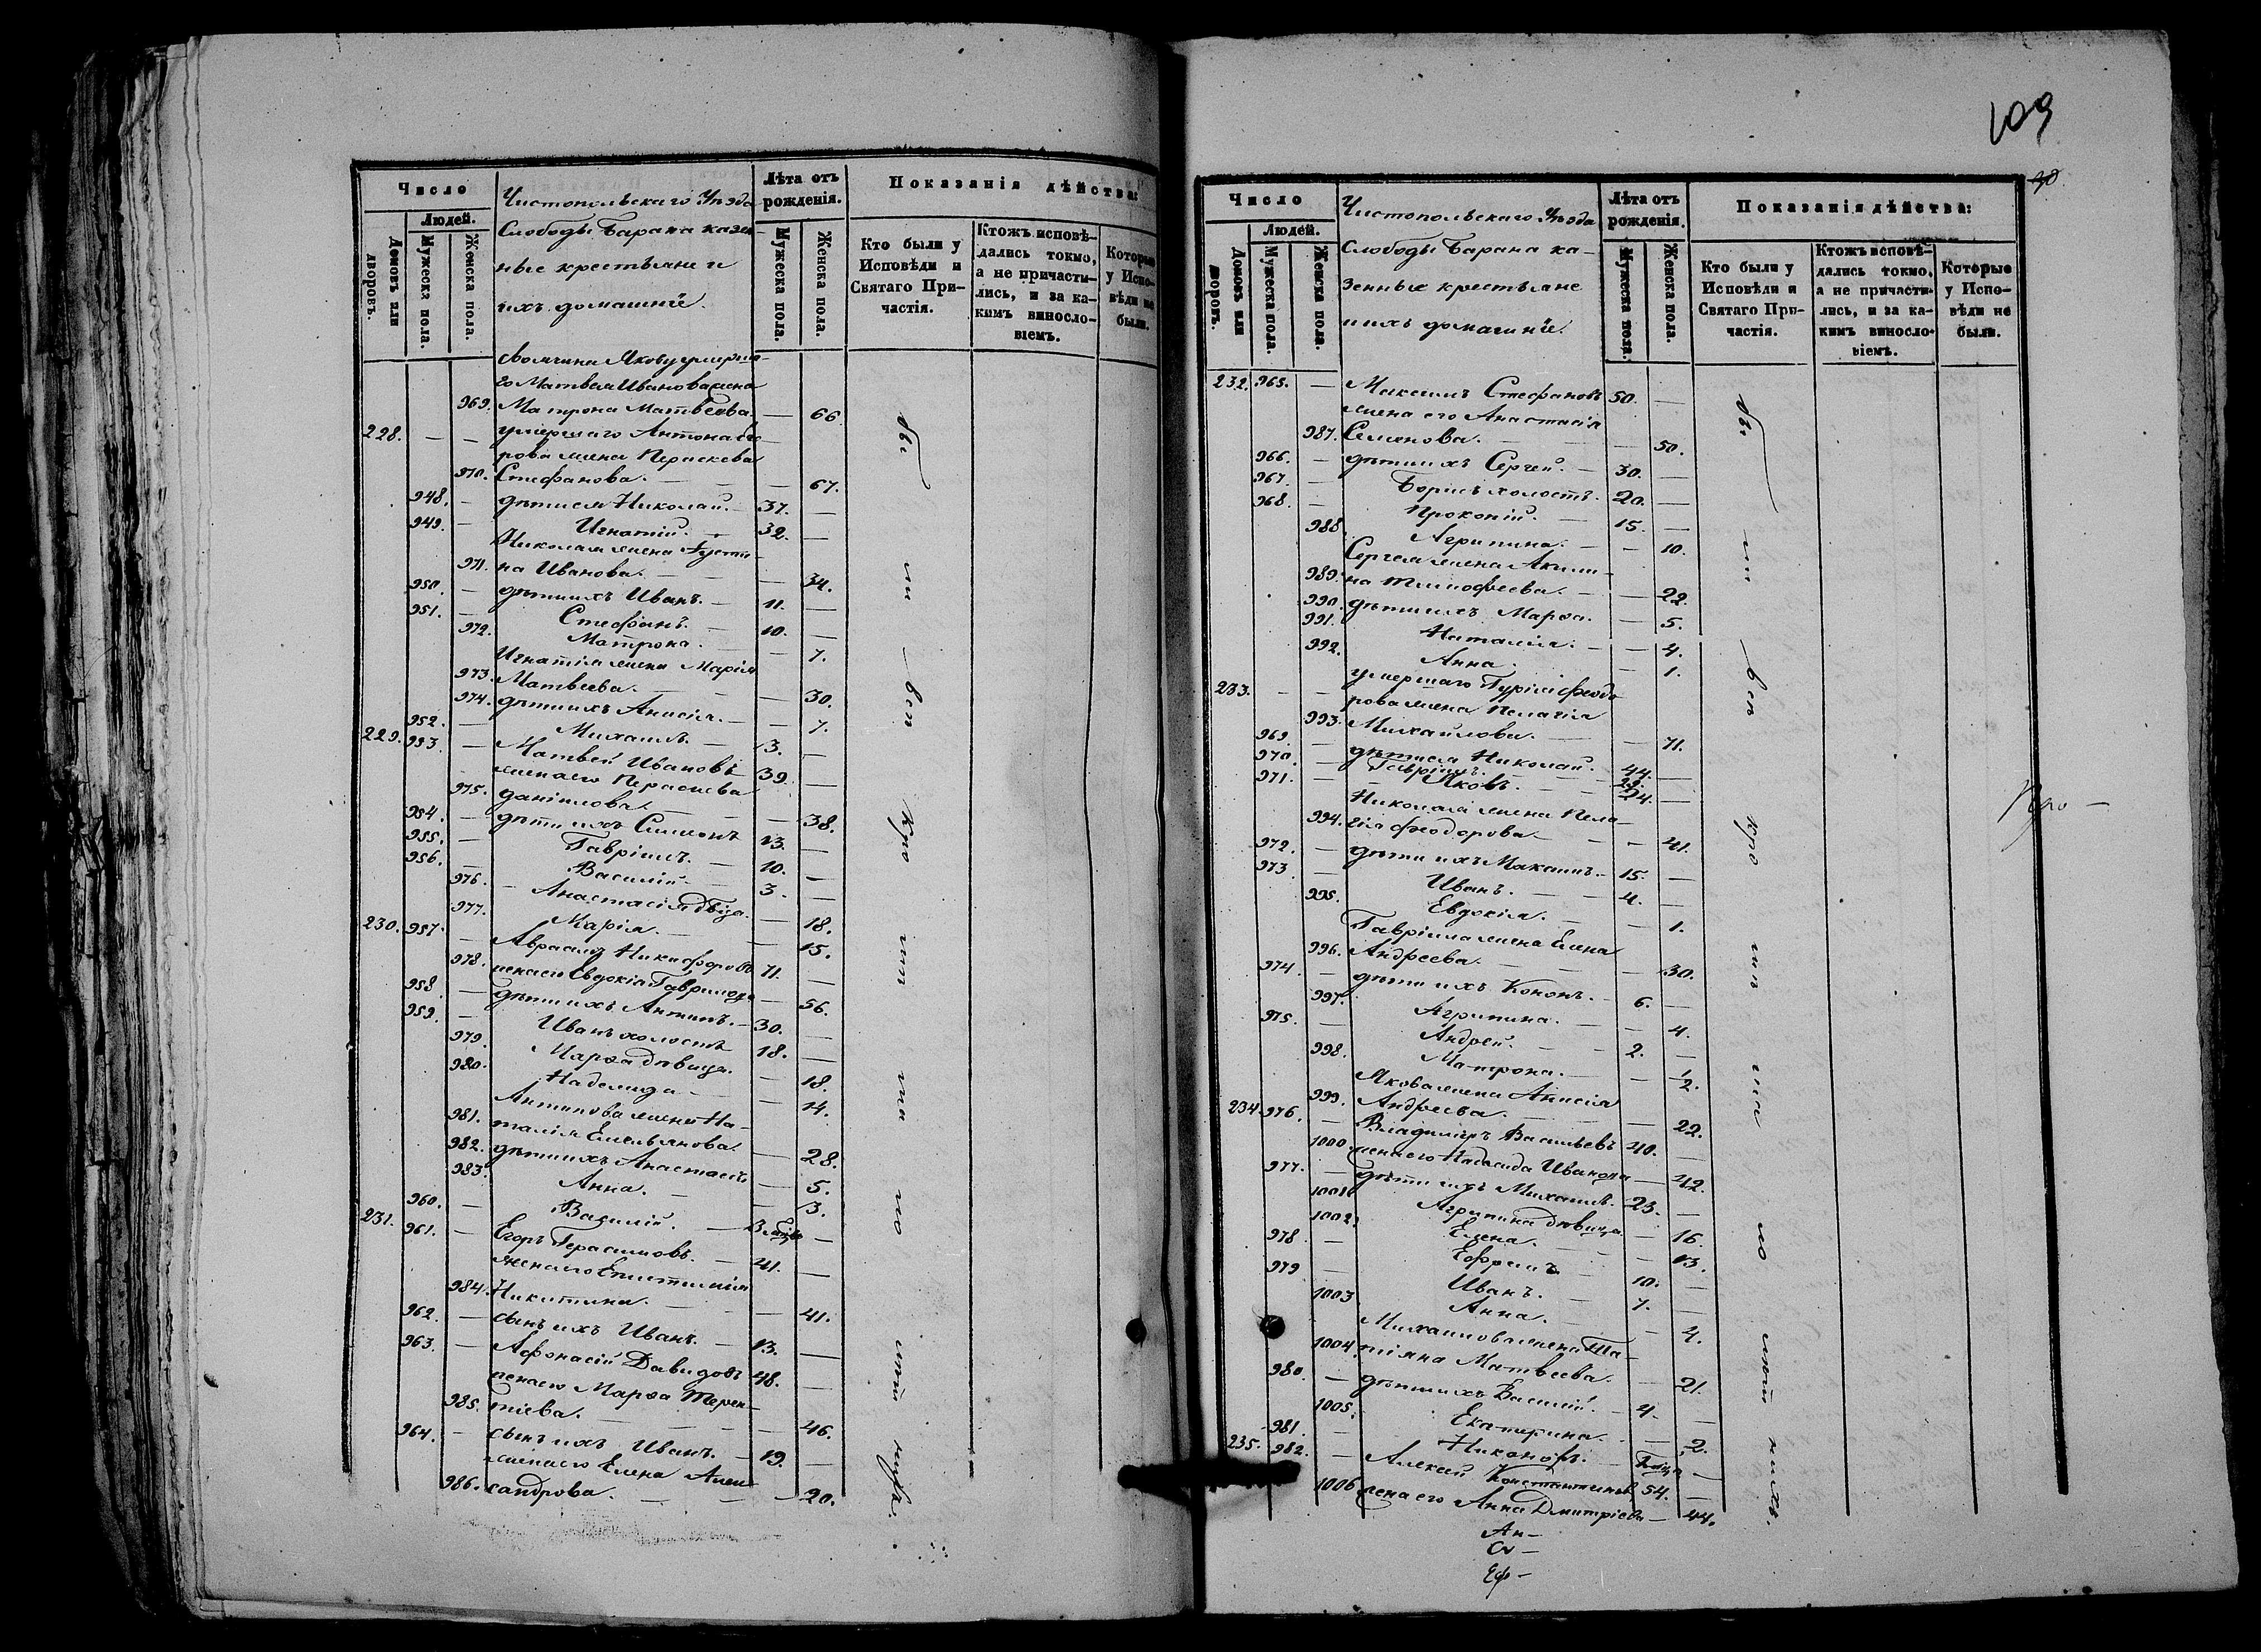 109
30
Число
Людей.
Домовъ или дворовъ.
Мужеска пола.
Женска пола.
Чистопольскаго Уѣзда
Слободы Барана казен-
ные крестьяне и
ихъ домашніе.
Лѣта отъ рожденія.
Мужеска пола.
Женска пола.
Показанія дѣйства:
Кто были у Исповѣди и Святаго Причастія.
Ктожъ исповѣдались токмо, а не причастились, и за какимъ винословіемъ.
Которые у Исповѣди не были.
умерша-
го Матвея Иванова жена
969. Матрона Матвеева. — 66.
228. — — умершаго Антона
рова жена Параскева
970. Стефанова. — — 67.
948. — дѣти ея Николай. — 37. —
949. — Игнатій. — 32. —
Николая жена Густи-
971. на Иванова. — — 34.
950. — дѣти ихъ Иванъ. — 11. —
951. — Стефанъ. — 10. —
972. Матрона. — — 7.
Игнатія жена Марія
973. Матвеева. — — 30.
974. дѣти ихъ Анисія. — — 7.
952. — Михаилъ. — 3. —
229. 953. — Матвей Ивановъ 39. —
жена его Параскева
975. Даніилова. — — 38.
954. — дѣти ихъ Симеонъ 13. —
955. — Гавріилъ. — 10. —
956. — Василій — 3. —
976. — Анастасія дѣвица. — 18.
977. Марія. — — 15.
230. 957. — Авраамъ Никифоровъ 71. —
978. жена его Евдокія Гаврилова — 56.
958. — дѣти ихъ Антипъ. — 30. —
959. — Иванъ холостъ 18. —
979. Марѳа дѣвица. — 18.
980. Надежда — — 14.
Антипова жена На-
981. талія Емельянова. — 28.
982. дѣти ихъ Анастасія — 5.
983. Анна. — — 3.
960. — Василій. —
231. 961. — Егоръ Герасимовъ. — 41. —
жена его Епистимія
984. Никитина. — — 41.
962. — сынъ ихъ Иванъ. — 13. —
963. — Афонасій Давидовъ 48. —
жена его Марѳа Терен-
985. тіева. — — 46.
964. — сынъ ихъ Иванъ. — 19. —
жена его Елена Алек-
986. сандрова. — — 20.
Число
Людей.
Домовъ или дворовъ.
Мужеска пола.
Женска пола.
Чистопольскаго Уѣзда
Слободы Барана ка-
зенные крестьяне
и ихъ домашніе.
Лѣта отъ рожденія.
Мужеска пола.
Женска пола.
Показанія дѣйства:
Кто были у Исповѣди и Святаго Причастія.
Ктожъ исповѣдались токмо, а не причастились, и за какимъ винословіемъ.
Которые у Исповѣди не были.
232. 965. — Максимъ Стефановъ 50. —
жена его Анастасія
987. Семенова. — — 50.
966. — дѣти ихъ Сергей. — 30. —
967. — Борисъ холостъ. 20. —
968. — Прокопій. — 15. —
988. Агрипина. — — 10.
Сергея жена Акили-
989. на Тимофеева. — — 22.
990. дѣти ихъ Марѳа. — 5.
991. Наталія. — — 4.
992. Анна. — 1.
233. — — умершаго Гурія Феодо-
рова жена Пелагія
993. Михайлова. — — 71.
969. — дѣти ея Николай. — 44. —
970. — Гавріилъ. — 29. —
971. — Яковъ. — 24. —
Николая жена Пела-
994. гія Феодорова — — 41.
972. — дѣти ихъ Максимъ. — 15. —
973. — Иванъ. — 4. —
995. Евдокія. — — 1.
Гавріила жена Елена
996. Андреева. — — 30.
974. — дѣти ихъ Кононъ. — 6. —
997. Агрипина. — — 4.
975. — Андрей. — 2. —
998. Матрона. — — 1/2.
Якова жена Анисія
999. Андреева. — — 22.
234. 976. — Владиміръ Васильевъ 40. —
1000 жена его Надежда Иванова — 42.
977. — дѣти ихъ Михаилъ. 23. —
1001 Агрипина дѣвица — 16.
1002. Елена. — — 13.
978. — Ефремъ — 10. —
979 — Иванъ. — 7. —
1003 Анна. — — 4.
Михаилова жена Та-
1004 тіяна Матвеева. — 21.
980. — дѣти ихъ Василій. — 4. —
1005. Екатерина. — 2.
981. — Никоноръ. —
235. 982. — Алексей Константиновъ 54. —
1006 жена его Анна Дмитріева — 44.
Ан—
Еф—